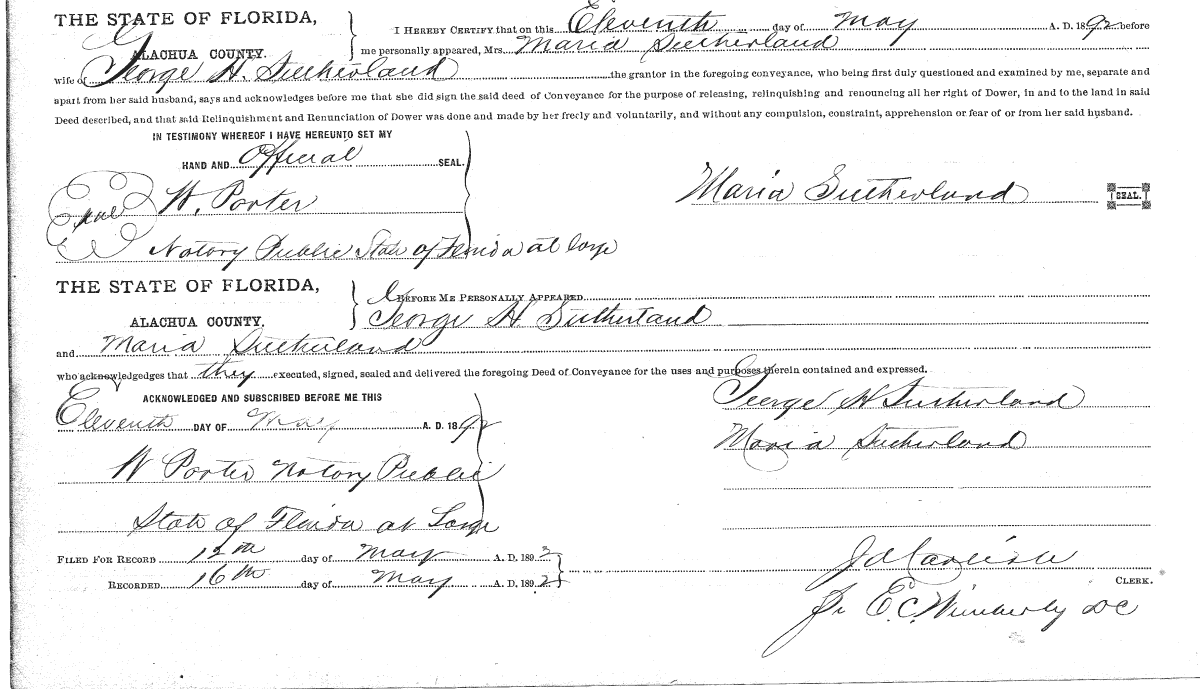 THE STATE OF FLORIDA,
ALACHUA COUNTY.
I HEREBY CERTIFY that on this Eleventh day of May A. D. 1892 before
me personally appeared, Mrs. Maria Sutherland
wife of George H. Sutherland the grantor in the foregoing conveyance, who being first duly questioned and examined by me, separate and
apart from her said husband, says and acknowledges before me that she did sign the said deed of Conveyance for the purpose of releasing, relinquishing and renouncing all her right of Dower, in and to the land in said
Deed described, and that said Relinquishment and Renunciation of Dower was done and made by her freely and voluntarily, and without any compulsion, constraint, apprehension or fear of or from her said husband.
IN TESTIMONY WHEREOF I HAVE HEREUNTO SET MY
HAND AND Official SEAL.
Seal W. Porter
Maria Sutherland SEAL.
Notary Public State of Florida at large
THE STATE OF FLORIDA,
ALACHUA COUNTY.
BEFORE ME PERSONALLY APPEARED
George H Sutherland
and Maria Sutherland
who acknowledges that they executed, signed, sealed and delivered the foregoing Deed of Conveyance for the uses and purposes therein contained and expressed.
ACKNOWLEDGED AND SUBSCRIBED BEFORE ME THIS
George H Sutherland
Eleventh DAY OF May A. D. 1892
Maria Sutherland
W Porter Notary Public
State of Florida at Large
FILED FOR RECORD 12th day of May A. D. 1892
RECORDED 16th day of May A. D. 1892
CLERK.
E. C. Wimberly DC